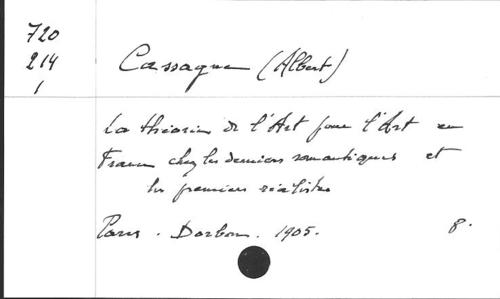 720
214
1
Cassagne (Albert)
La théorie de l'Art pour l'Art en
France chez les derniers romantiques et
les premiers réalistes
Paris. Dorbon. 1905. 8.